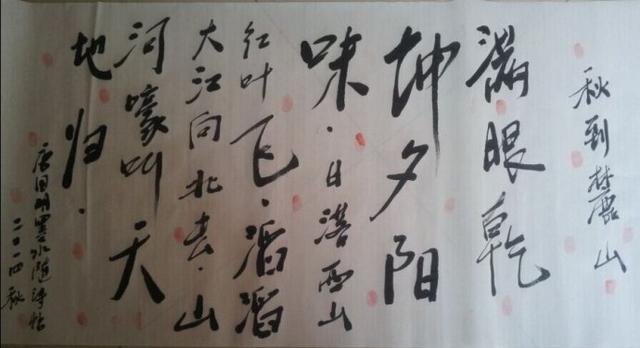 秋到楚鹿山
满眼乾
坤夕阳
味·日落西山
红叶飞·滔滔
大江向北去·山
河嚎叫天
地归·
唐国明墨水随译帖
二〇一四秋